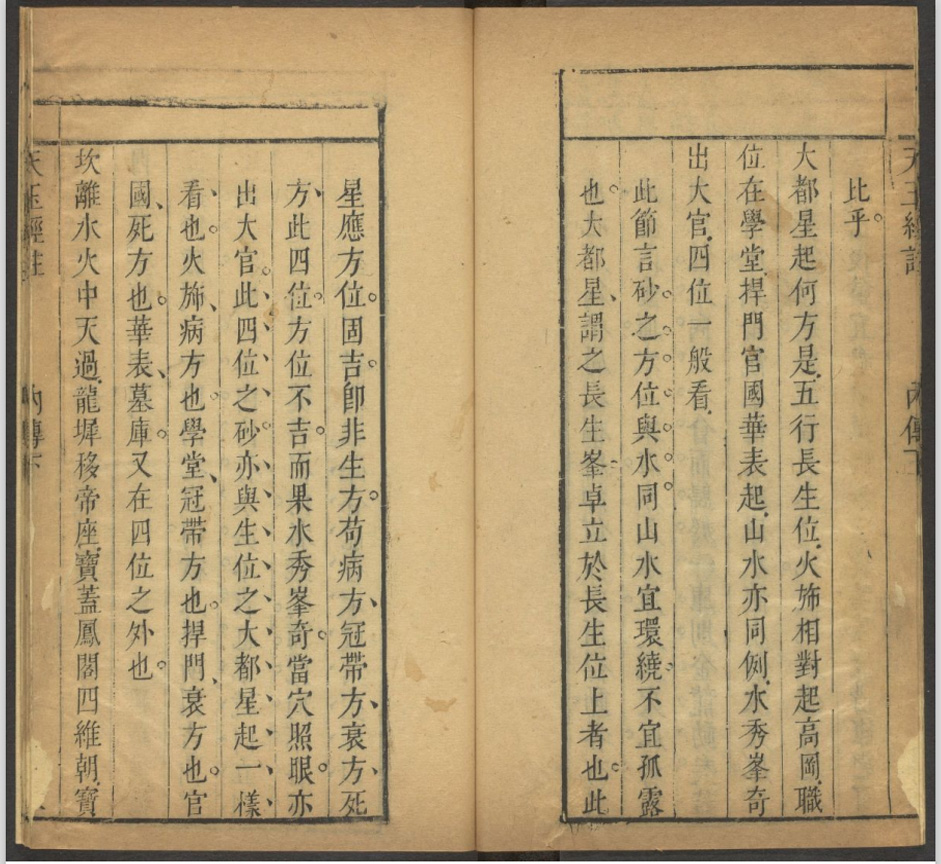 天玉經註 內傳下
比乎。
大都星起何方是五行長生位火斾相對起高岡職
位在學堂捍門官國華表起山水亦同例水秀峯奇
出大官四位一般看
此節言砂之方位與水同山水宜環繞不宜孤露
也大都星謂之長生峯卓立於長生位上者也此
星應方位固吉卽非生方苟病方冠帶方衰方死
方此四位方位不吉而果水秀峯奇當穴照眼亦
出大官此四位之砂亦與生位之大都星起一樣
看也火斾病方也學堂冠帶方也捍門衰方也官
國死方也華表墓庫又在四位之外也
坎離水火中天過龍墀移帝座寶蓋鳳閣四維朝寶
天玉經註 內傳下